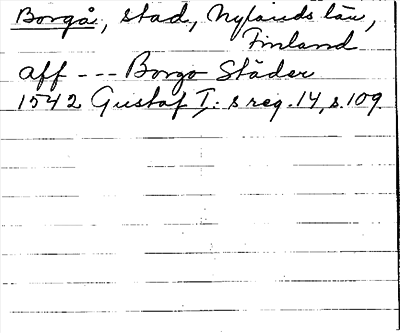 Borgå, stad, Nylands län,
Finland
aff --- Borgo Städer
1542 Gustaf I: s reg. 14, s. 109.